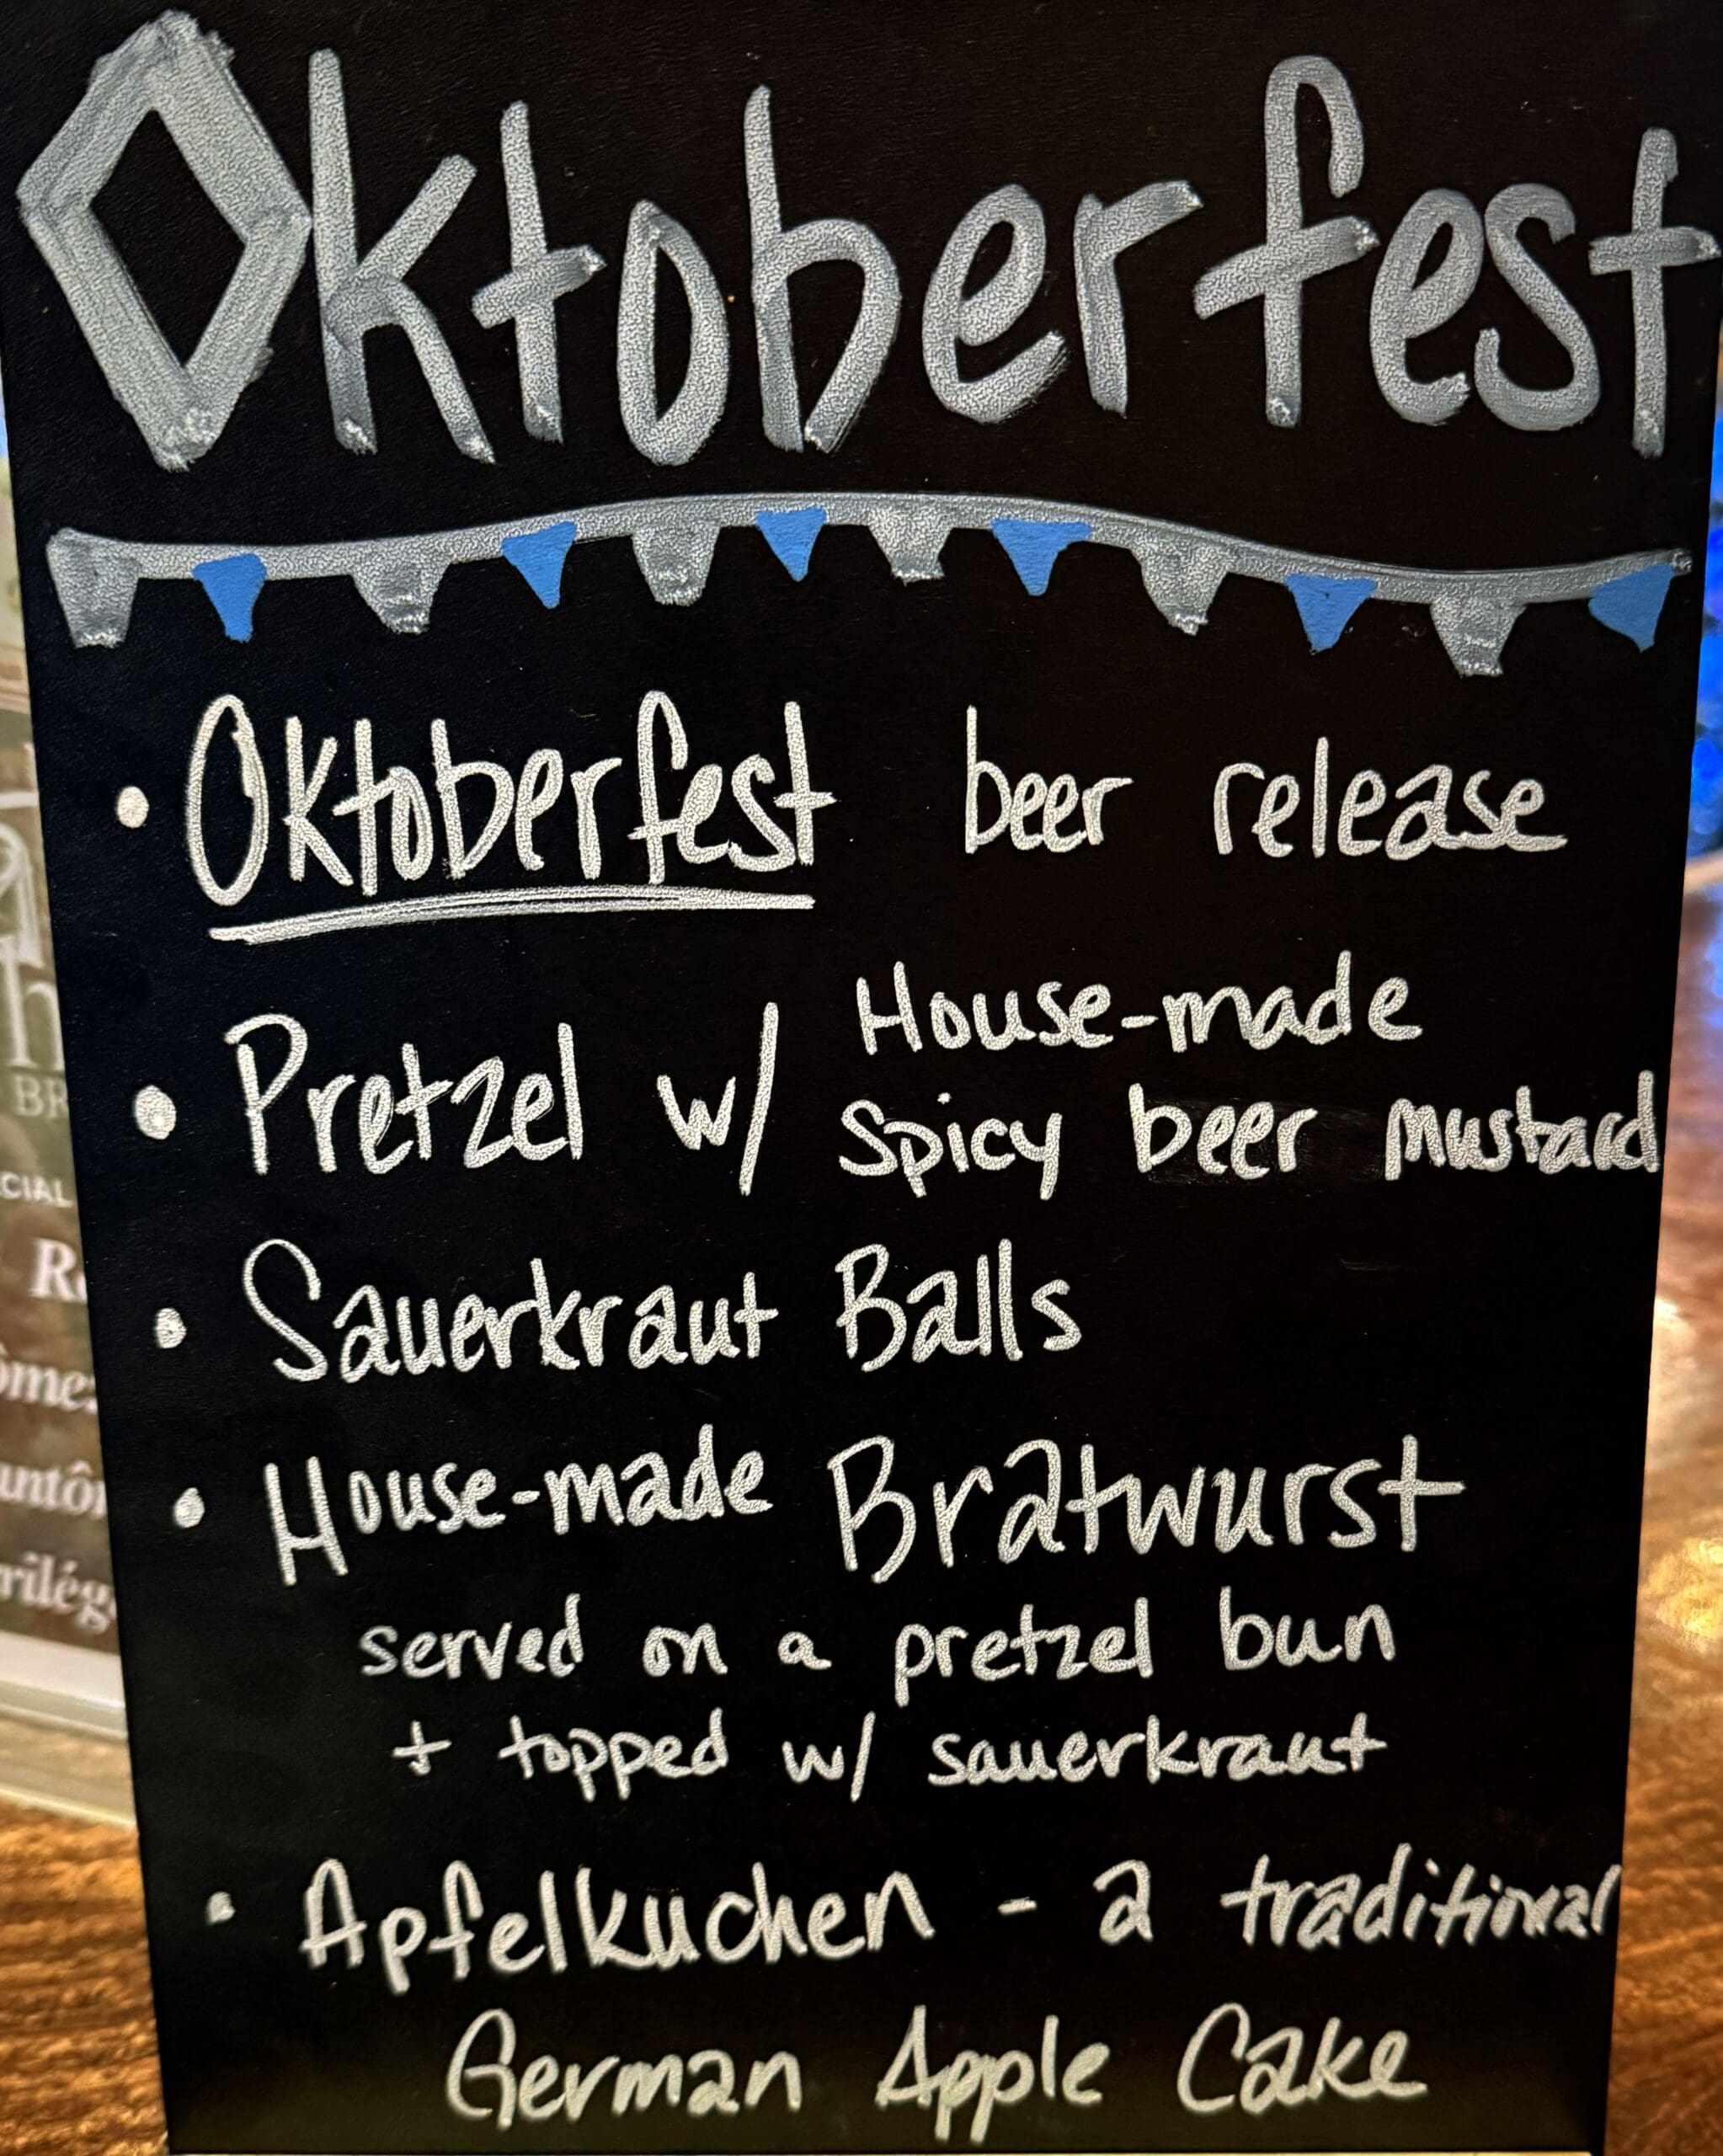 Oktoberfest
• Oktoberfest beer release
• Pretzel w/ House-made
spicy beer mustard
• Sauerkraut Balls
• House-made Bratwurst
served on a pretzel bun
+ topped w/ sauerkraut
• Apfelkuchen - a traditional
German Apple Cake
BR
CIAL